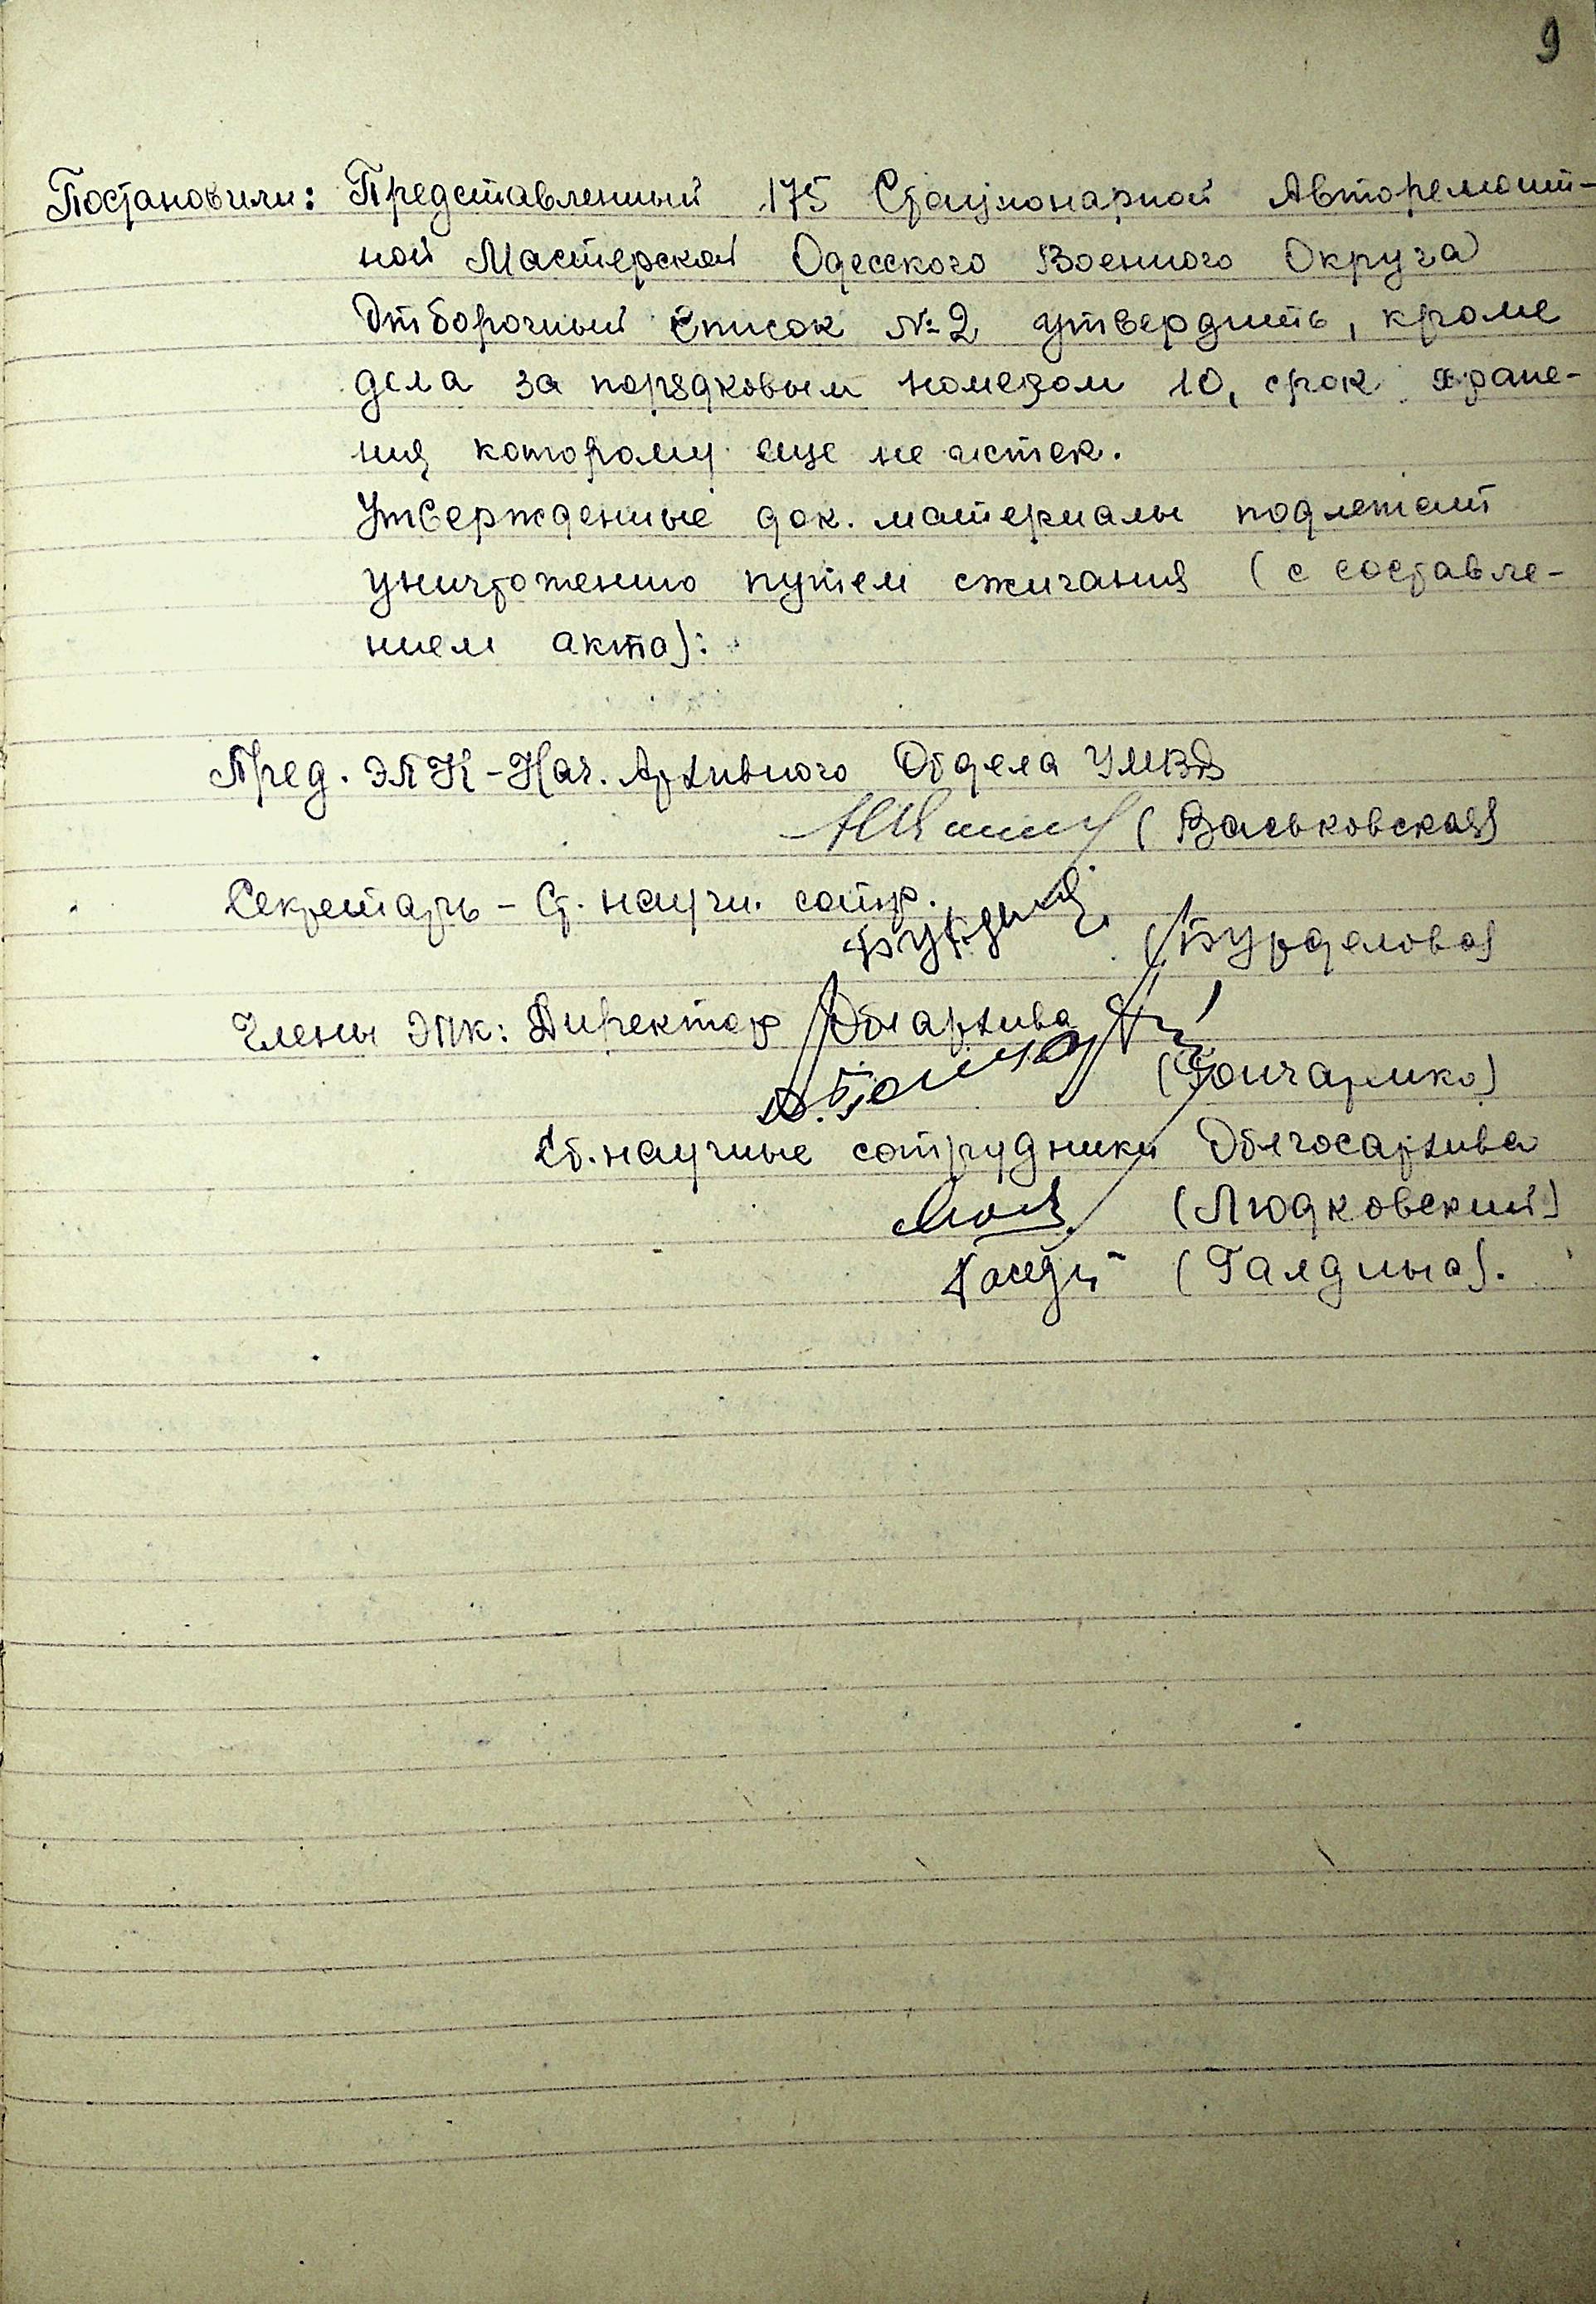 9
Постановили: Представленный 175 Стационарной Авторемонт-
ной Мастерской Одесского Военного Округа
Отборочный Список №2 утвердить, кроме
дела за порядковым номером 10, срок хране-
ния которому еще не истек.
Утвержденные док. материалы подлежат
уничтожению путем сжигания (с составле-
нием акта):
Пред. ЭПК - Нач. Архивного Отдела УМВД
(Васьковская)
Секретарь - Ст. научн. сотр.
(Бурделова)
Члены ЭПК: Директор Облархива
(Гончаренко)
Ст. научные сотрудники Облгосархива
(Людковский)
(Галдина).